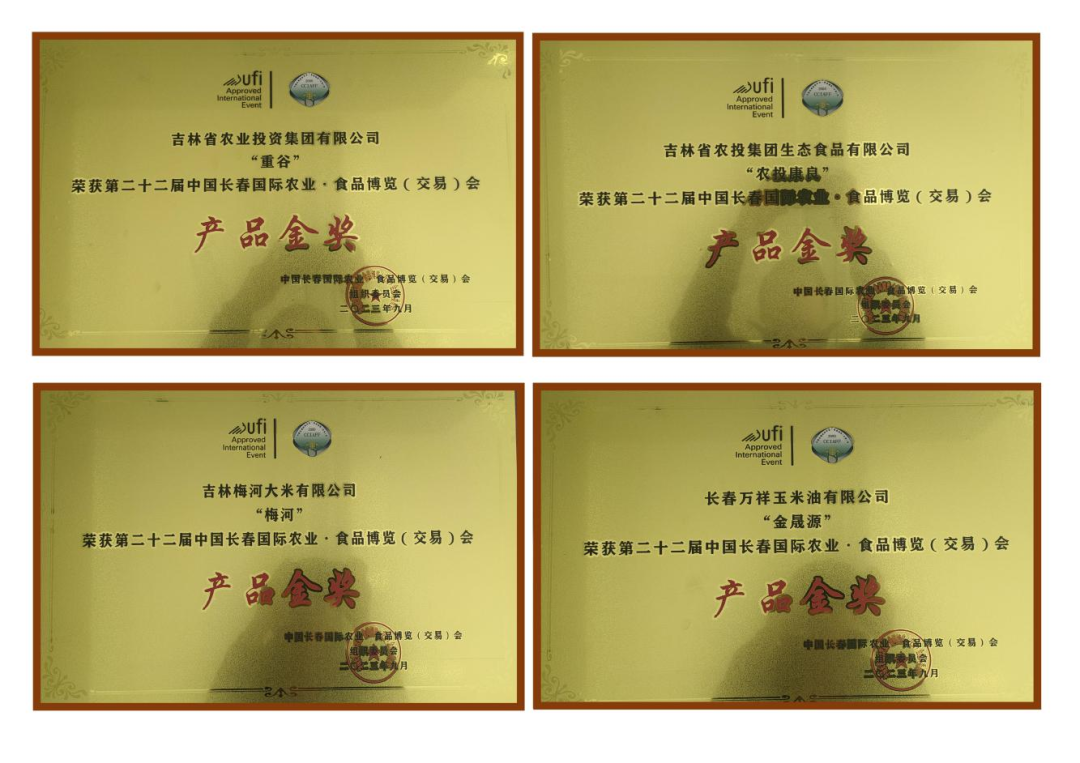 ufi
Approved
International
Event
吉林省农业投资集团有限公司
“重谷”
荣获第二十二届中国长春国际农业·食品博览（交易）会
产品金奖
中国长春国际农业·食品博览（交易）会
组织委员会
二〇二三年九月
ufi
Approved
International
Event
吉林省农投集团生态食品有限公司
“农投康良”
荣获第二十二届中国长春国际农业·食品博览（交易）会
产品金奖
中国长春国际农业·食品博览（交易）会
组织委员会
二〇二三年九月
ufi
Approved
International
Event
吉林梅河大米有限公司
“梅河”
荣获第二十二届中国长春国际农业·食品博览（交易）会
产品金奖
中国长春国际农业·食品博览（交易）会
组织委员会
二〇二三年九月
ufi
Approved
International
Event
长春万祥玉米油有限公司
“金晟源”
荣获第二十二届中国长春国际农业·食品博览（交易）会
产品金奖
中国长春国际农业·食品博览（交易）会
组织委员会
二〇二三年九月